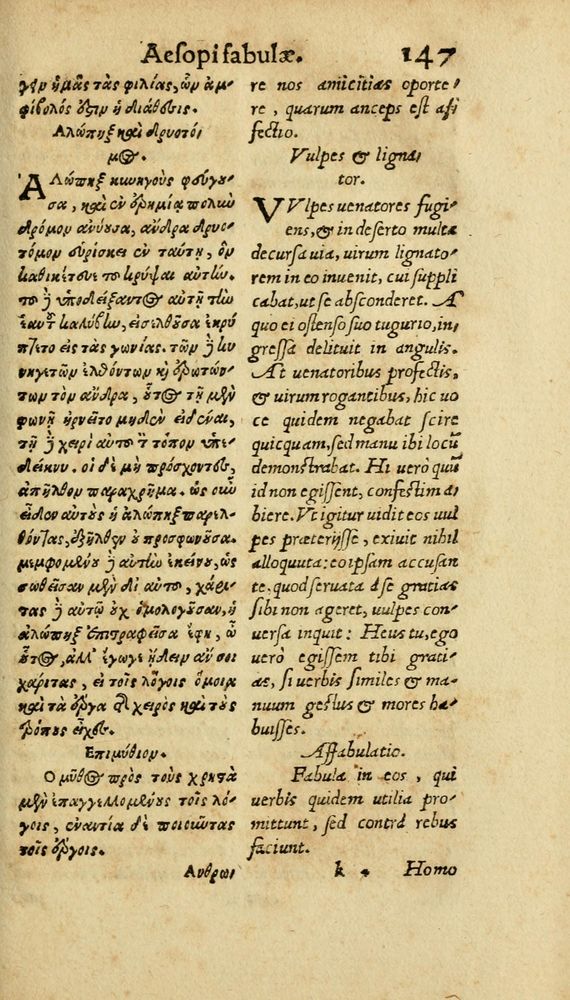 Aesopi fabulæ. 147
γειν ἡμᾶς τὰς φιλίας, ὧν ἀμ-
φίβολός ἐστιν ἡ διάθεσις.
Αλώπηξ καὶ δρυοτό-
μος.
Αλώπηξ κυνηγοὺς φεύγου-
σα, καὶ ἐν ἐρημίᾳ πολὺν
δρόμον ἀνύσασα, ἄνδρα δρυο-
τόμον εὑρίσκει ἐν ταύτῃ, ὃν
καθικέτευε τοῦ κρύψαι αὐτήν.
τοῦ δὲ ὑποδείξαντος αὐτῇ τὴν
ἑαυτοῦ καλύβην, εἰσελθοῦσα ἐκρύ
πτετο εἰς τὰς γωνίας. τῶν δὲ κυ
νηγετῶν ἐλθόντων καὶ ἐρωτών-
των τὸν ἄνδρα, οὗτος τῇ μὲν
φωνῇ ἠρνεῖτο μηδὲν εἰδέναι,
τῇ δὲ χειρὶ αὐτοῦ τὸν τόπον ὑπε-
δείκνυ. οἱ δὲ μὴ πρόσχοντες,
ἀπῆλθον παραχρῆμα. ὡς οὖν
εἶδεν αὐτοὺς ἡ ἀλώπηξ παρελ-
θόντας, ἐξῆλθεν οὐ προσφωνοῦσα.
μεμφομένου δὲ αὐτὴν ἐκείνου, ὡς
σωθεῖσαν μὲν δι αὐτοῦ, χάρι-
τας δὲ αὐτῷ οὐχ ὁμολογοῦσαν, ἡ
ἀλώπηξ ἐπιστραφεῖσα ἔφη, ὦ
οὗτος, ἀλλ' ἔγωγε ᾔδειν ἄν σοι
χάριτας, εἰ τοῖς λόγοις ὅμοια
καὶ τὰ ἔργα τῆς χειρὸς καὶ τοὺς
τρόπους εἶχες.
Επιμύθιον.
Ο μῦθος πρὸς τοὺς χρηστὰ
μὲν ἐπαγγελλομένους τοῖς λό-
γοις, ἐναντία δὲ ποιοῦντας
τοῖς ἔργοις.
Ανθρω-
re nos amicitias oporte-
re, quarum anceps est af
fectio.
Vulpes & ligna-
tor.
VVlpes uenatores fugi-
ens, & in deserto multa
decursa uia, uirum lignato-
rem in eo inuenit, cui suppli
cabat, ut se absconderet. A
quo ei ostenso suo tugurio, in-
gressa delituit in angulis.
At uenatoribus profectis,
& uirum rogantibus, hic uo
ce quidem negabat scire
quicquam, sed manu ibi locũ
demonstrabat. Hi uerò quũ
id non egissent, confestim a-
biere. Vt igitur uidit eos uul
pes præterijsse, exiuit nihil
alloquuta: eo ipsam accusan
te, quod seruata à se gratias
sibi non ageret, uulpes con-
uersa inquit: Heus tu, ego
uerò egissem tibi grati-
as, si uerbis similes & ma-
nuum gestus & mores ha-
buisses.
Affabulatio.
Fabula in eos, qui
uerbis quidem utilia pro-
mittunt, sed contrà rebus
faciunt.
k Homo